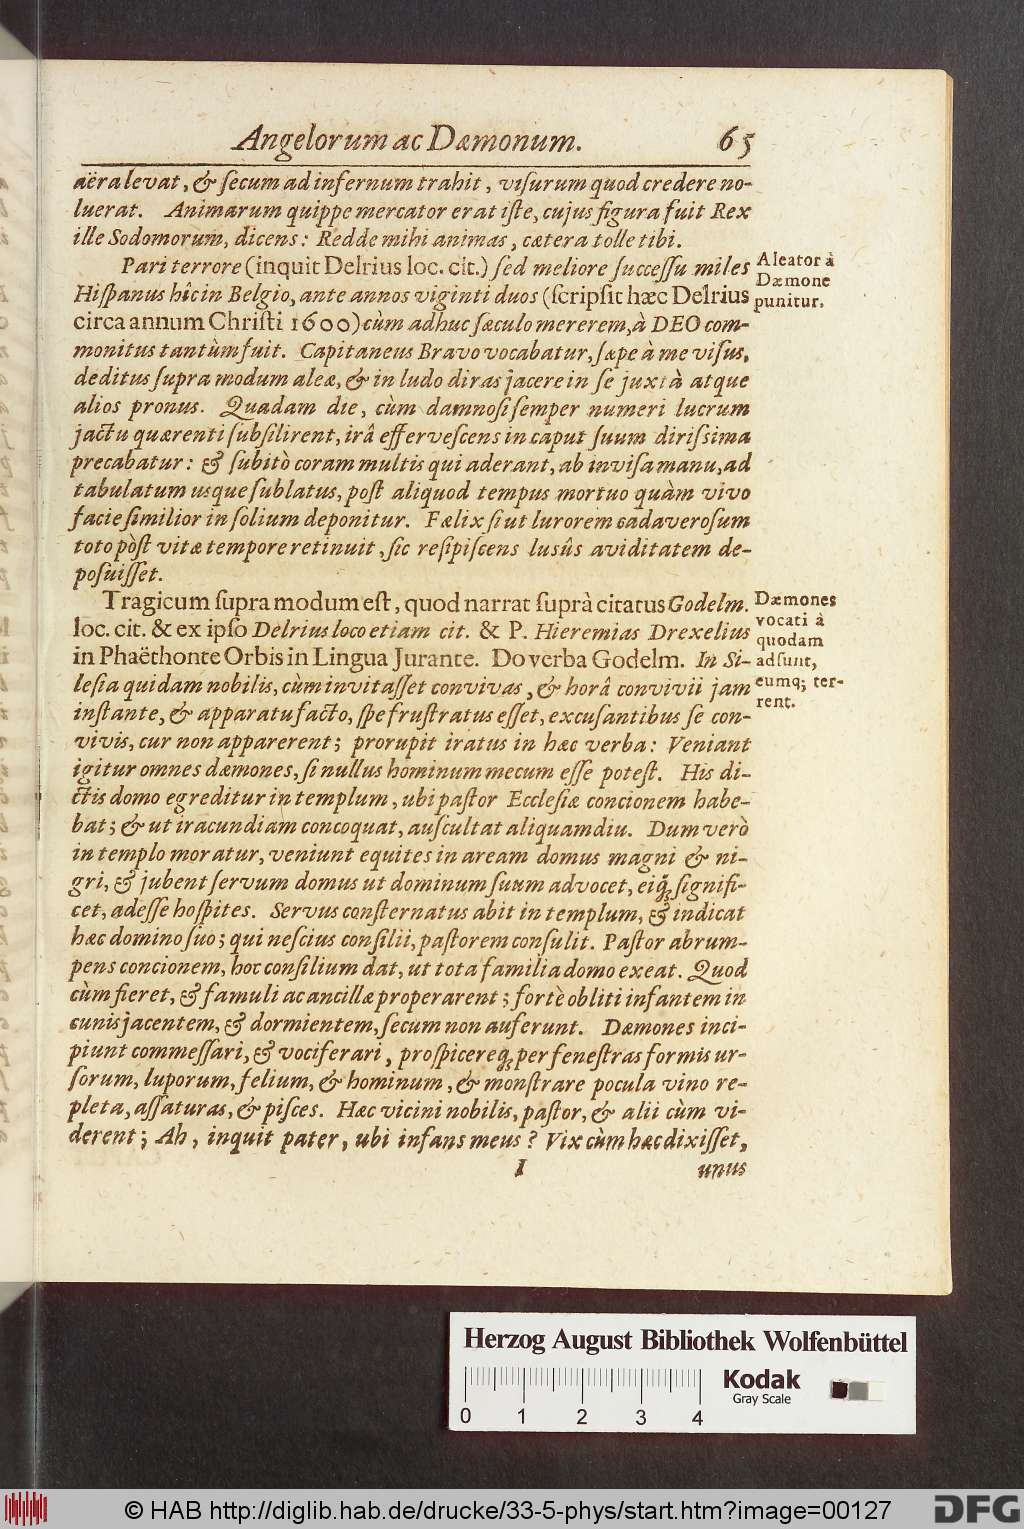 Angelorum ac Dæmonum. 65
aëra levat, & ſecum ad infernum trahit, viſurum quod credere no-
luerat. Animarum quippe mercator erat iſte, cujus figura fuit Rex
ille Sodomorum, dicens: Redde mihi animas, cætera tolle tibi.
Pari terrore (inquit Delrius loc. cit.) ſed meliore ſucceſſu miles
Hiſpanus hîc in Belgio, ante annos viginti duos (ſcripſit hæc Delrius
circa annum Chriſti 1600) cùm adhuc ſæculo mererem, à DEO com-
monitus tantùm fuit. Capitaneus Bravo vocabatur, ſæpe à me viſus,
deditus ſupra modum aleæ, & in ludo diras jacere in ſe juxtà atque
alios pronus. Quadam die, cùm damnoſi ſemper numeri lucrum
jactu quærenti ſubſilirent, irâ efferveſcens in caput ſuum diriſsima
precabatur: & ſubitò coram multis qui aderant, ab inviſa manu, ad
tabulatum usque ſublatus, poſt aliquod tempus mortuo quàm vivo
facie ſimilior in ſolium deponitur. Fælix ſi ut lurorem cadaveroſum
toto pòſt vitæ tempore retinuit, ſic reſipiſcens lusûs aviditatem de-
poſuiſſet.
Aleator à
Dæmone
punitur.
Tragicum ſupra modum eſt, quod narrat ſuprà citatus Godelm.
loc. cit. & ex ipſo Delrius loco etiam cit. & P. Hieremias Drexelius
in Phaëthonte Orbis in Lingua Jurante. Do verba Godelm. In Si-
leſia quidam nobilis, cùm invitaſſet convivas, & horâ convivii jam
inſtante, & apparatu facto, ſpe fruſtratus eſſet, excuſantibus ſe con-
vivis, cur non apparerent; prorupit iratus in hæc verba: Veniant
igitur omnes dæmones, ſi nullus hominum mecum eſſe poteſt. His di-
ctis domo egreditur in templum, ubi paſtor Eccleſiæ concionem habe-
bat; & ut iracundiam concoquat, auſcultat aliquamdiu. Dum verò
in templo moratur, veniunt equites in aream domus magni & ni-
gri, & jubent ſervum domus ut dominum ſuum advocet, eiq́; ſignifi-
cet, adeſſe hoſpites. Servus conſternatus abit in templum, & indicat
hæc domino ſuo; qui neſcius conſilii, paſtorem conſulit. Paſtor abrum-
pens concionem, hoc conſilium dat, ut tota familia domo exeat. Quod
cùm fieret, & famuli ac ancillæ properarent; fortè obliti infantem in
cunis jacentem, & dormientem, ſecum non auferunt. Dæmones inci-
piunt commeſſari, & vociferari, proſpicereq́; per feneſtras formis ur-
ſorum, luporum, felium, & hominum, & monſtrare pocula vino re-
pleta, aſſaturas, & piſces. Hæc vicini nobilis, paſtor, & alii cùm vi-
derent; Ah, inquit pater, ubi infans meus? Vix cùm hæc dixiſſet,
Dæmones
vocati à
quodam
adſunt,
eumq; ter-
rent.
I unus
Herzog August Bibliothek Wolfenbüttel
0 1 2 3 4
Kodak
Gray Scale
© HAB http://diglib.hab.de/drucke/33-5-phys/start.htm?image=00127
DFG